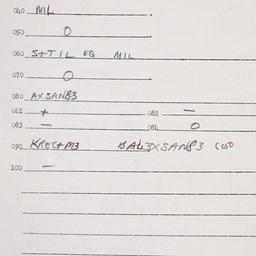 040 MIL
050 O
060 S+TIL EQ MIL
070 O
080 AXSAN83
081 + 082 –
083 – 084 O
090 KREC+M3 BAL3XSAN83 (050
100 –